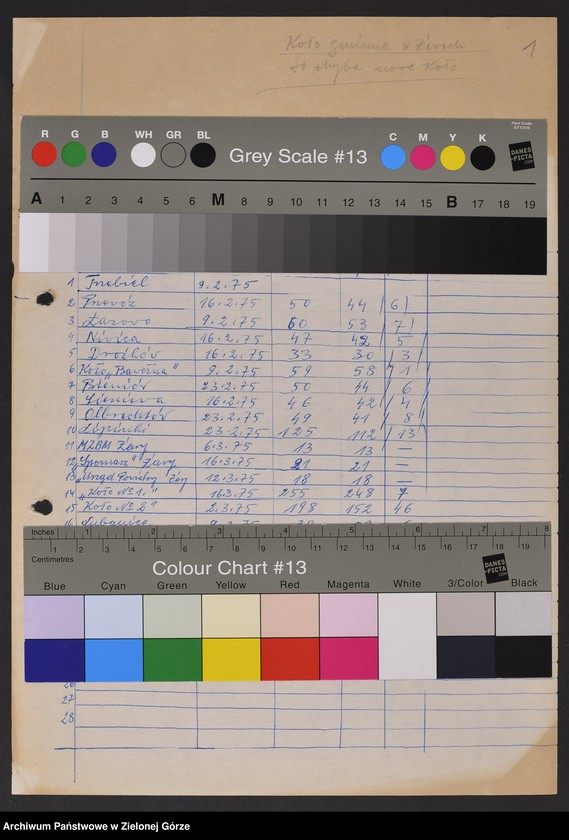 Koło gminne w Żarach 1
to chyba nowe Koło
Part Code
ST1316
R G B WH GR BL Grey Scale #13 C M Y K
DANES
-PICTA
.COM
A 1 2 3 4 5 6 M 8 9 10 11 12 13 14 15 B 17 18 19
1 Trzebiel 9.2.75
2 Przewóz 16.2.75 50 44 /6/
3 9.2.75 60 53 /7/
4 Niwica 16.2.75 47 42 /5/
5 Drożków 16.2.75 33 30 /3/
6 Koło „Bawełna" 9.2.75 59 58 /1/
7 Bieniów 23.2.75 50 44 /6/
8 16.2.75 46 42 /4/
9 Olbrachtów 23.2.75 49 41 /8/
10 Lipinki 23.2.75 125 112 /13/
11 MZBM Żary 6.3.75 13 13 —
12 „Spomasz" Żary 16.3.75 21 21 —
13 „Urząd Powiatowy" 12.3.75 18 18 —
14 „Koło № 1." 16.3.75 255 248 7
15 Koło № 2" 2.3.75 198 152 46
16 Lubanice
Inches 1 2 3 4 5 6 7 8
Centimetres 1 2 3 4 5 6 7 8 9 10 11 12 13 14 15 16 17 18 19
Colour Chart #13
DANES
-PICTA
.COM
Blue Cyan Green Yellow Red Magenta White 3/Color Black
26
27
28
Archiwum Państwowe w Zielonej Górze